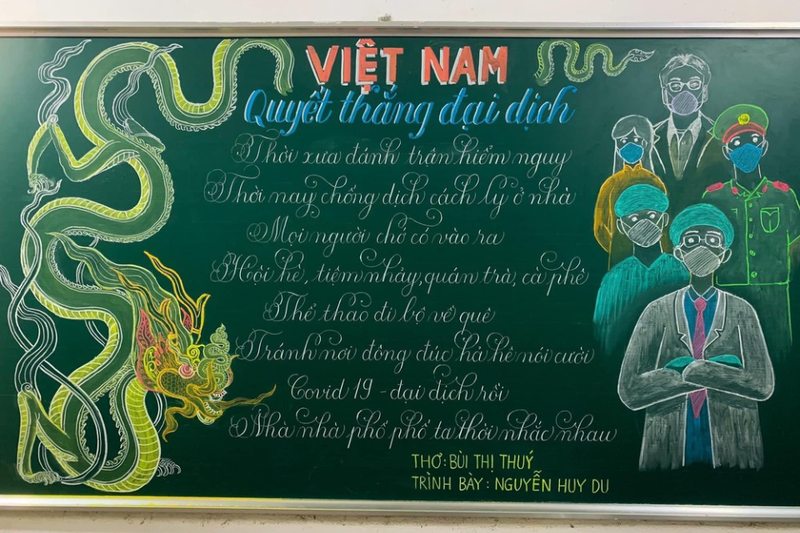 VIỆT NAM
Quyết thắng đại dịch
Thời xưa đánh trận hiểm nguy
Thời nay chống dịch cách ly ở nhà
Mọi người chớ có vào ra
Hội hè, tiệm nhảy, quán trà, cà phê
Thể thao đi bộ về quê
Tránh nơi đông đúc hả hê nói cười
Covid 19 - đại dịch rồi
Nhà nhà phố phố ta thời nhắc nhau
THƠ: BÙI THỊ THUÝ
TRÌNH BÀY: NGUYỄN HUY DU